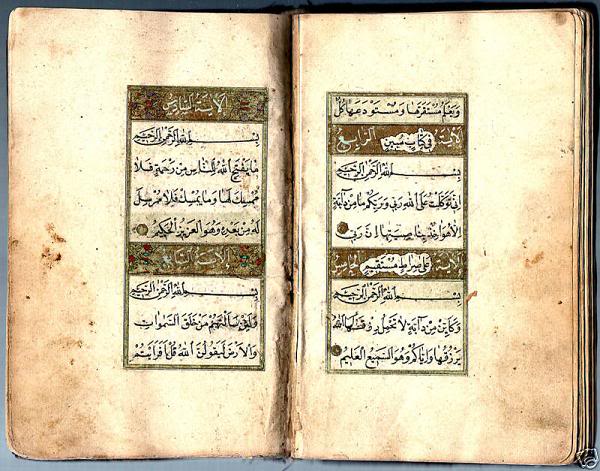 ويعلم مستقرها ومستودعها كل
الاية في كتاب مبين الرابعة
بسم الله الرحمن الرحيم
اني توكلت على الله ربي وربكم ما من دابة
الا هو اخذ بناصيتها ان ربي
الاية على صراط مستقيم الخامسة
بسم الله الرحمن الرحيم
وكاين من دابة لا تحمل رزقها الله
يرزقها واياكم وهو السميع العليم
الاية السادسة
بسم الله الرحمن الرحيم
ما يفتح الله للناس من رحمة فلا
ممسك لها وما يمسك فلا مرسل
له من بعده وهو العزيز الحكيم
الاية السابعة
بسم الله الرحمن الرحيم
ولئن سالتهم من خلق السموات
والارض ليقولن الله قل افرايتم